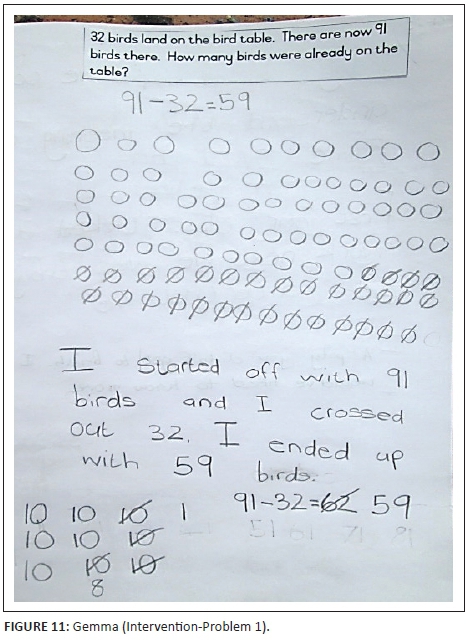 32 birds land on the bird table. There are now 91
birds there. How many birds were already on the
table?
91-32=59
I started off with 91
birds and I crossed
out 32. I ended up
with 59 birds.
91-32=62 59
10 10 10 1
10 10 10
10 10 10
8
FIGURE 11: Gemma (Intervention-Problem 1).